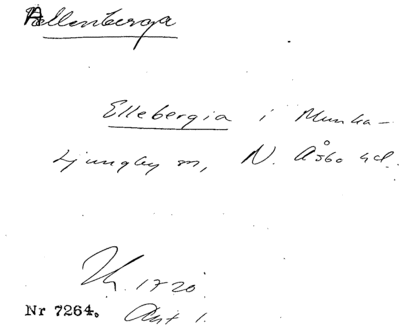 Allenberga
Ellebergia i Munka-
Ljungby sn, N. Åsbo hd.
1720.
Nr 7264. Akt 1.